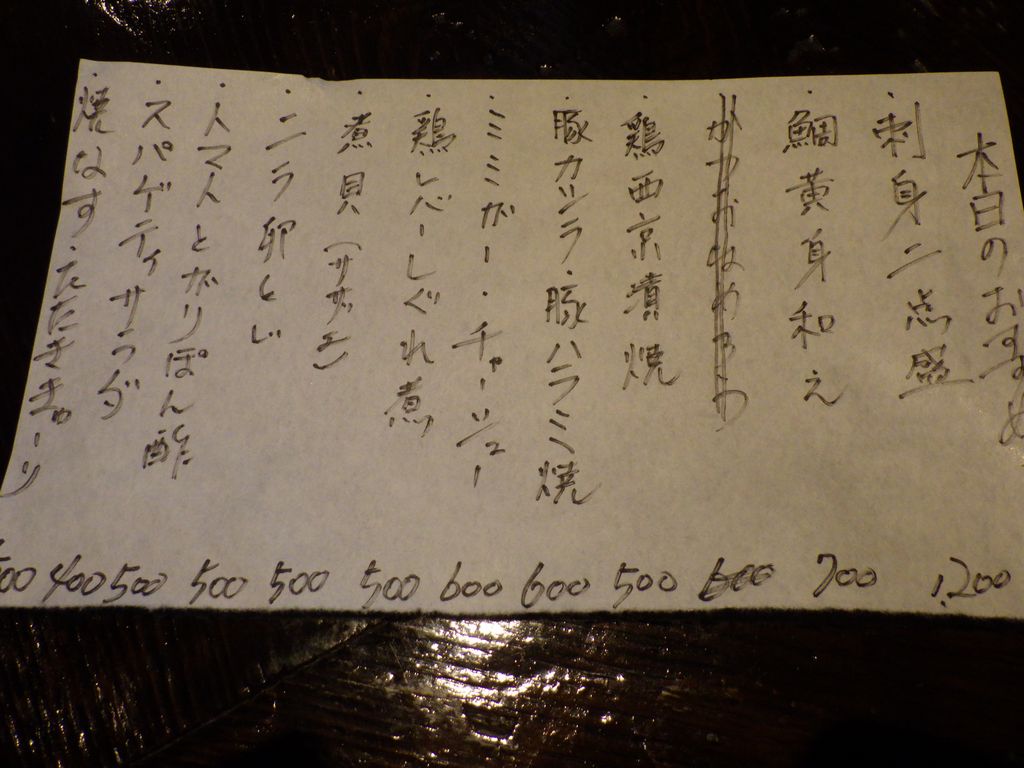 本日のおすすめ
・刺身二点盛 1,200
・鯛黄身和え 700
600
・鶏西京漬焼 500
・豚カシラ・豚ハラミ焼 600
・ミミガー・チャーシュー 600
・鶏レバーしぐれ煮 500
・煮貝(サザエ) 500
・ニラ卵とじ 500
・トマトとガリぽん酢 500
・スパゲティサラダ 400
・焼なす・たたききゅーり 500